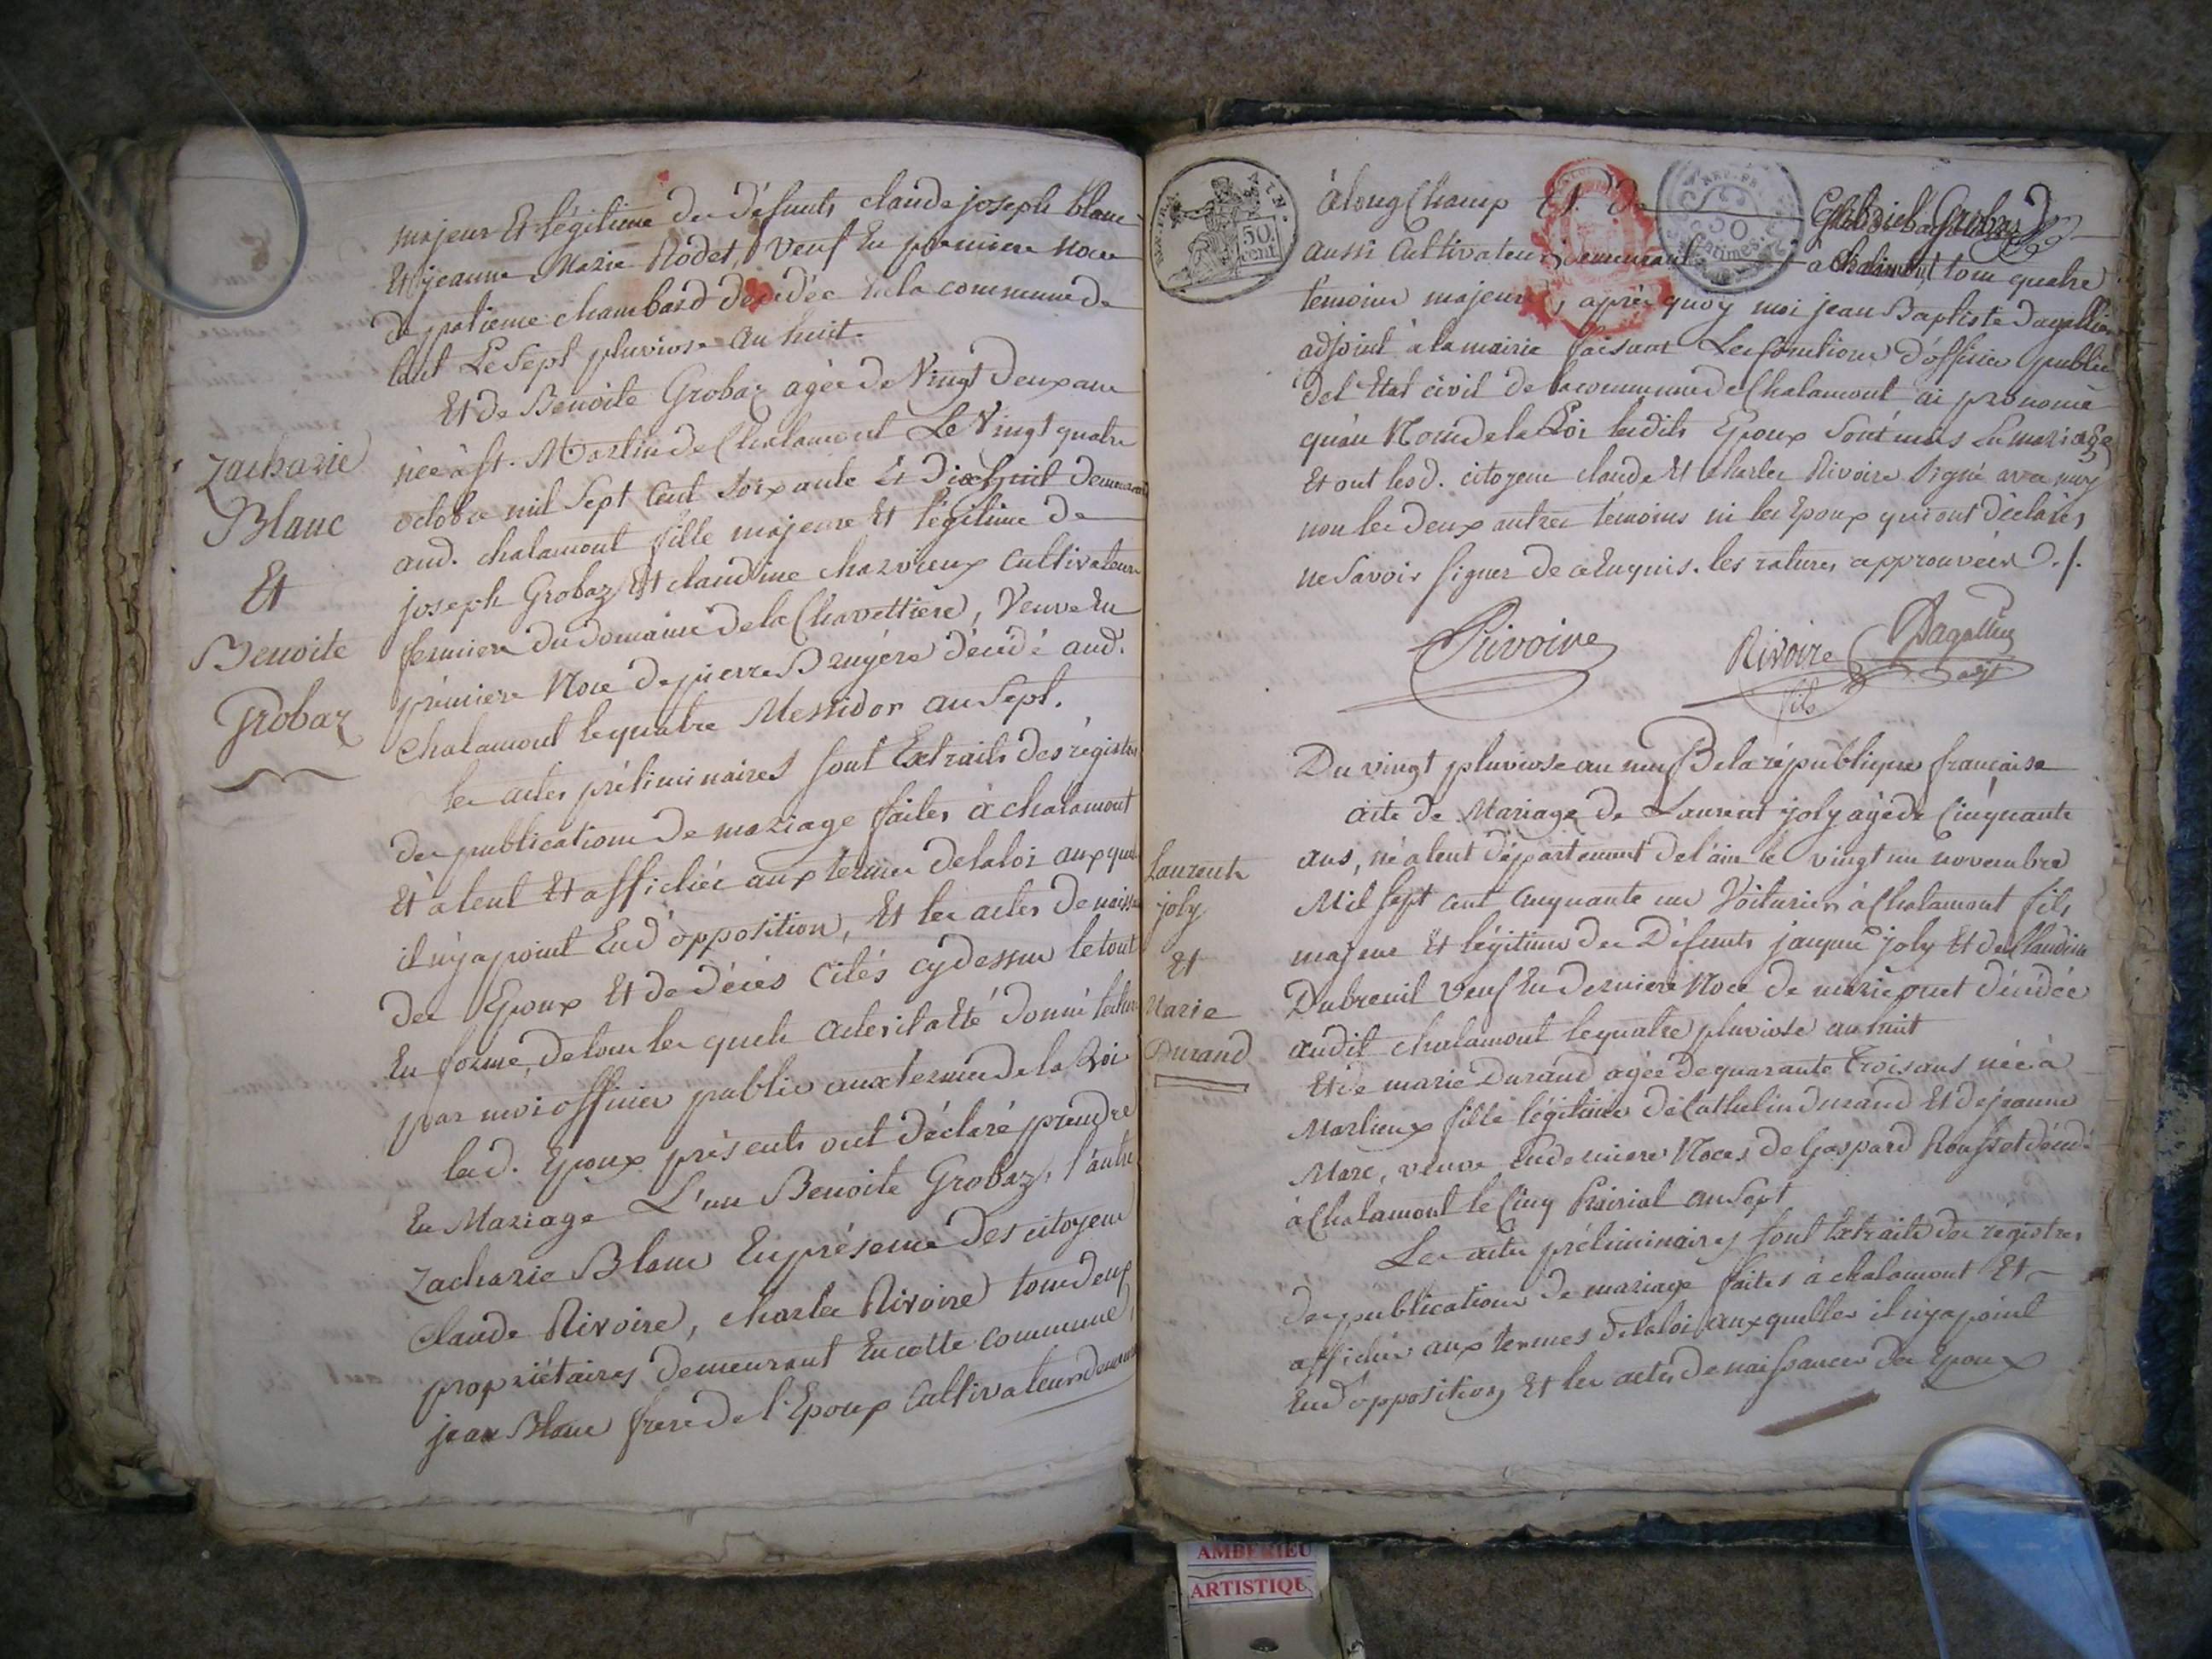 majeur Et légitime des défunts claude joseph blanc
Et jeanne Marie Rodet, Veuf En premiere Noce
de chambard décédée En la commune de
lent Le Sept pluviose an huit.
Et de Benoite Grobaz agée de Vingt deux ans
née à St. Martin de Chalamont Le Vingt quatre
octobre mil Sept Cent Soixante Et Dixhuit demeurant
aud. chalamont fille majeure Et légitime de
joseph Grobaz Et claudine charvieux Cultivateurs
fermiers du domaine de la Chavettiere, Veuve En
premiere Noce de pierre Bruyere décédé aud.
Chalamont le quatre Messidor an Sept.
les actes préliminaires sont Extraits des registres
des publications de mariage faites à chalamont
Et à lent Et affichées aux termes de la loi auxquelles
il n'y a point Eu d'opposition, Et les actes de naissance
des Epoux Et de décès Cités cy dessus le tout
En forme, de tous les quels actes il a Eté donné lecture
par moi officier public aux termes de la Loi
lesd. Epoux présents ont déclaré prendre
En Mariage L'un Benoite Grobaz, l'autre
Zacharie Blanc En présence des citoyens
Claude Rivoire, charles Rivoire tous deux
propriétaires demeurant En cette commune,
jean Blanc frere de l'Epoux Cultivateur demeurant
Zacharie
Blanc
Et
Benoite
Grobaz
à long Champ Et de Gabriel Grobaz
aussi Cultivateur demeurant à Chalamont, tous quatre
témoins majeurs, après quoy moi jean Baptiste Dagallier
adjoint à la mairie faisant Les fonctions d'officier public
del'Etat civil de la commune de Chalamont ai prononcé
qu'au Nom de la Loi lesdits Epoux Sont unis En mariage
Et ont lesd. citoyens claude Et Charles Rivoire Signé avec moy
non les deux autres témoins ni les Epoux qui ont déclaré
ne Savoir Signer de ce Enquis. les ratures approuvées ./.
Rivoire
Rivoire
fils
Dagallier
adjt
Du vingt pluviose an neuf de la république francaise
acte de Mariage de Laurent joly agé de Cinquante
ans, né à lent département de l'ain le vingt un novembre
Mil Sept cent cinquante un Voiturier à Chalamont fils
majeur Et légitime des Défunts jaques joly Et de Claudine
Dubreuil Veuf En derniere Noce de marie décédée
audit chalamont le quatre pluviose an huit
Et de marie Durand agée de quarante trois ans née à
Marlieux fille légitime de Durand Et de jeanne
Marc, veuve En derniere Noces de Gaspard Rousset décédé
à Chalamont le Cinq Prairial an Sept
Les actes préliminaires sont Extraits des registres
des publications de mariage faites à chalamont Et
affichées aux termes de la loi auxquelles il n'y a point
Eu d'opposition, Et les actes de naissances des Epoux
Laurent
joly
Et
Marie
Durand
50
cent.
REP. FR.
50
Centimes
AMBERIEU
ARTISTIQU